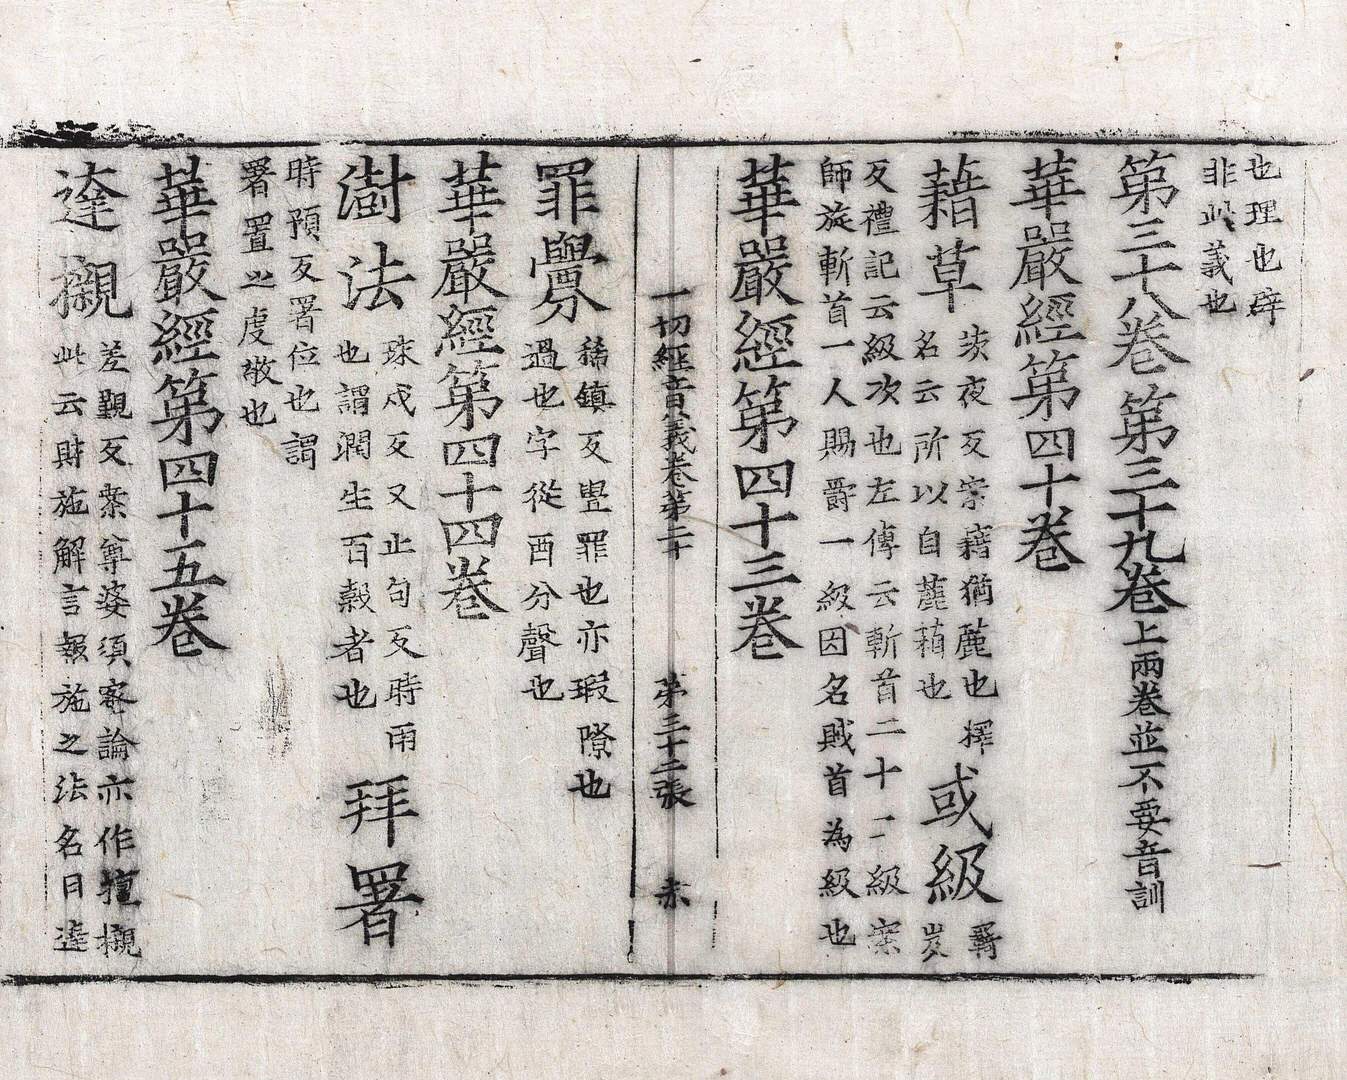 也理也辟
非此義也
第三十八卷第三十九卷上兩卷並不要音訓
華嚴經第四十卷
藉草
茨夜反宗藉猶薦也釋
名云所以自薦藉也
或級
羇岌
反禮記云級次也左傳云斬首二十二級案
師旋斬首一人賜爵一級因名賊首為級也
華嚴經第四十三卷
一切經音義卷第二十 第三十二張 赤
罪舋
稀鎮反舋罪也亦瑕隙也
過也字從酉分聲也
華嚴經第四十四卷
澍法
珠戍反又止句反時雨
也謂潤生百穀者也
拜署
時預反署位也謂
署置之虔敬也
華嚴經第四十五卷
達櫬
差覲反案尊婆須蜜論亦作檀櫬
此云財施解言報施之法名曰達